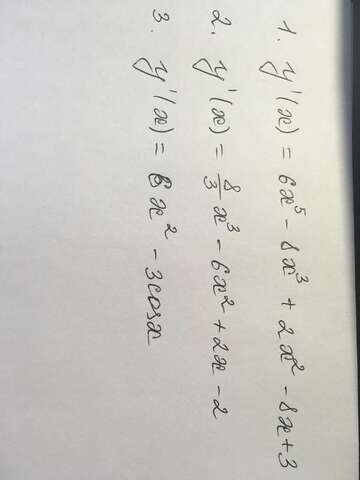 1. y'(x) = 6x⁵ - 8x³ + 2x² - 8x + 3
2. y'(x) = 8/3 x³ - 6x² + 2x - 2
3. y'(x) = 6x² - 3cosx